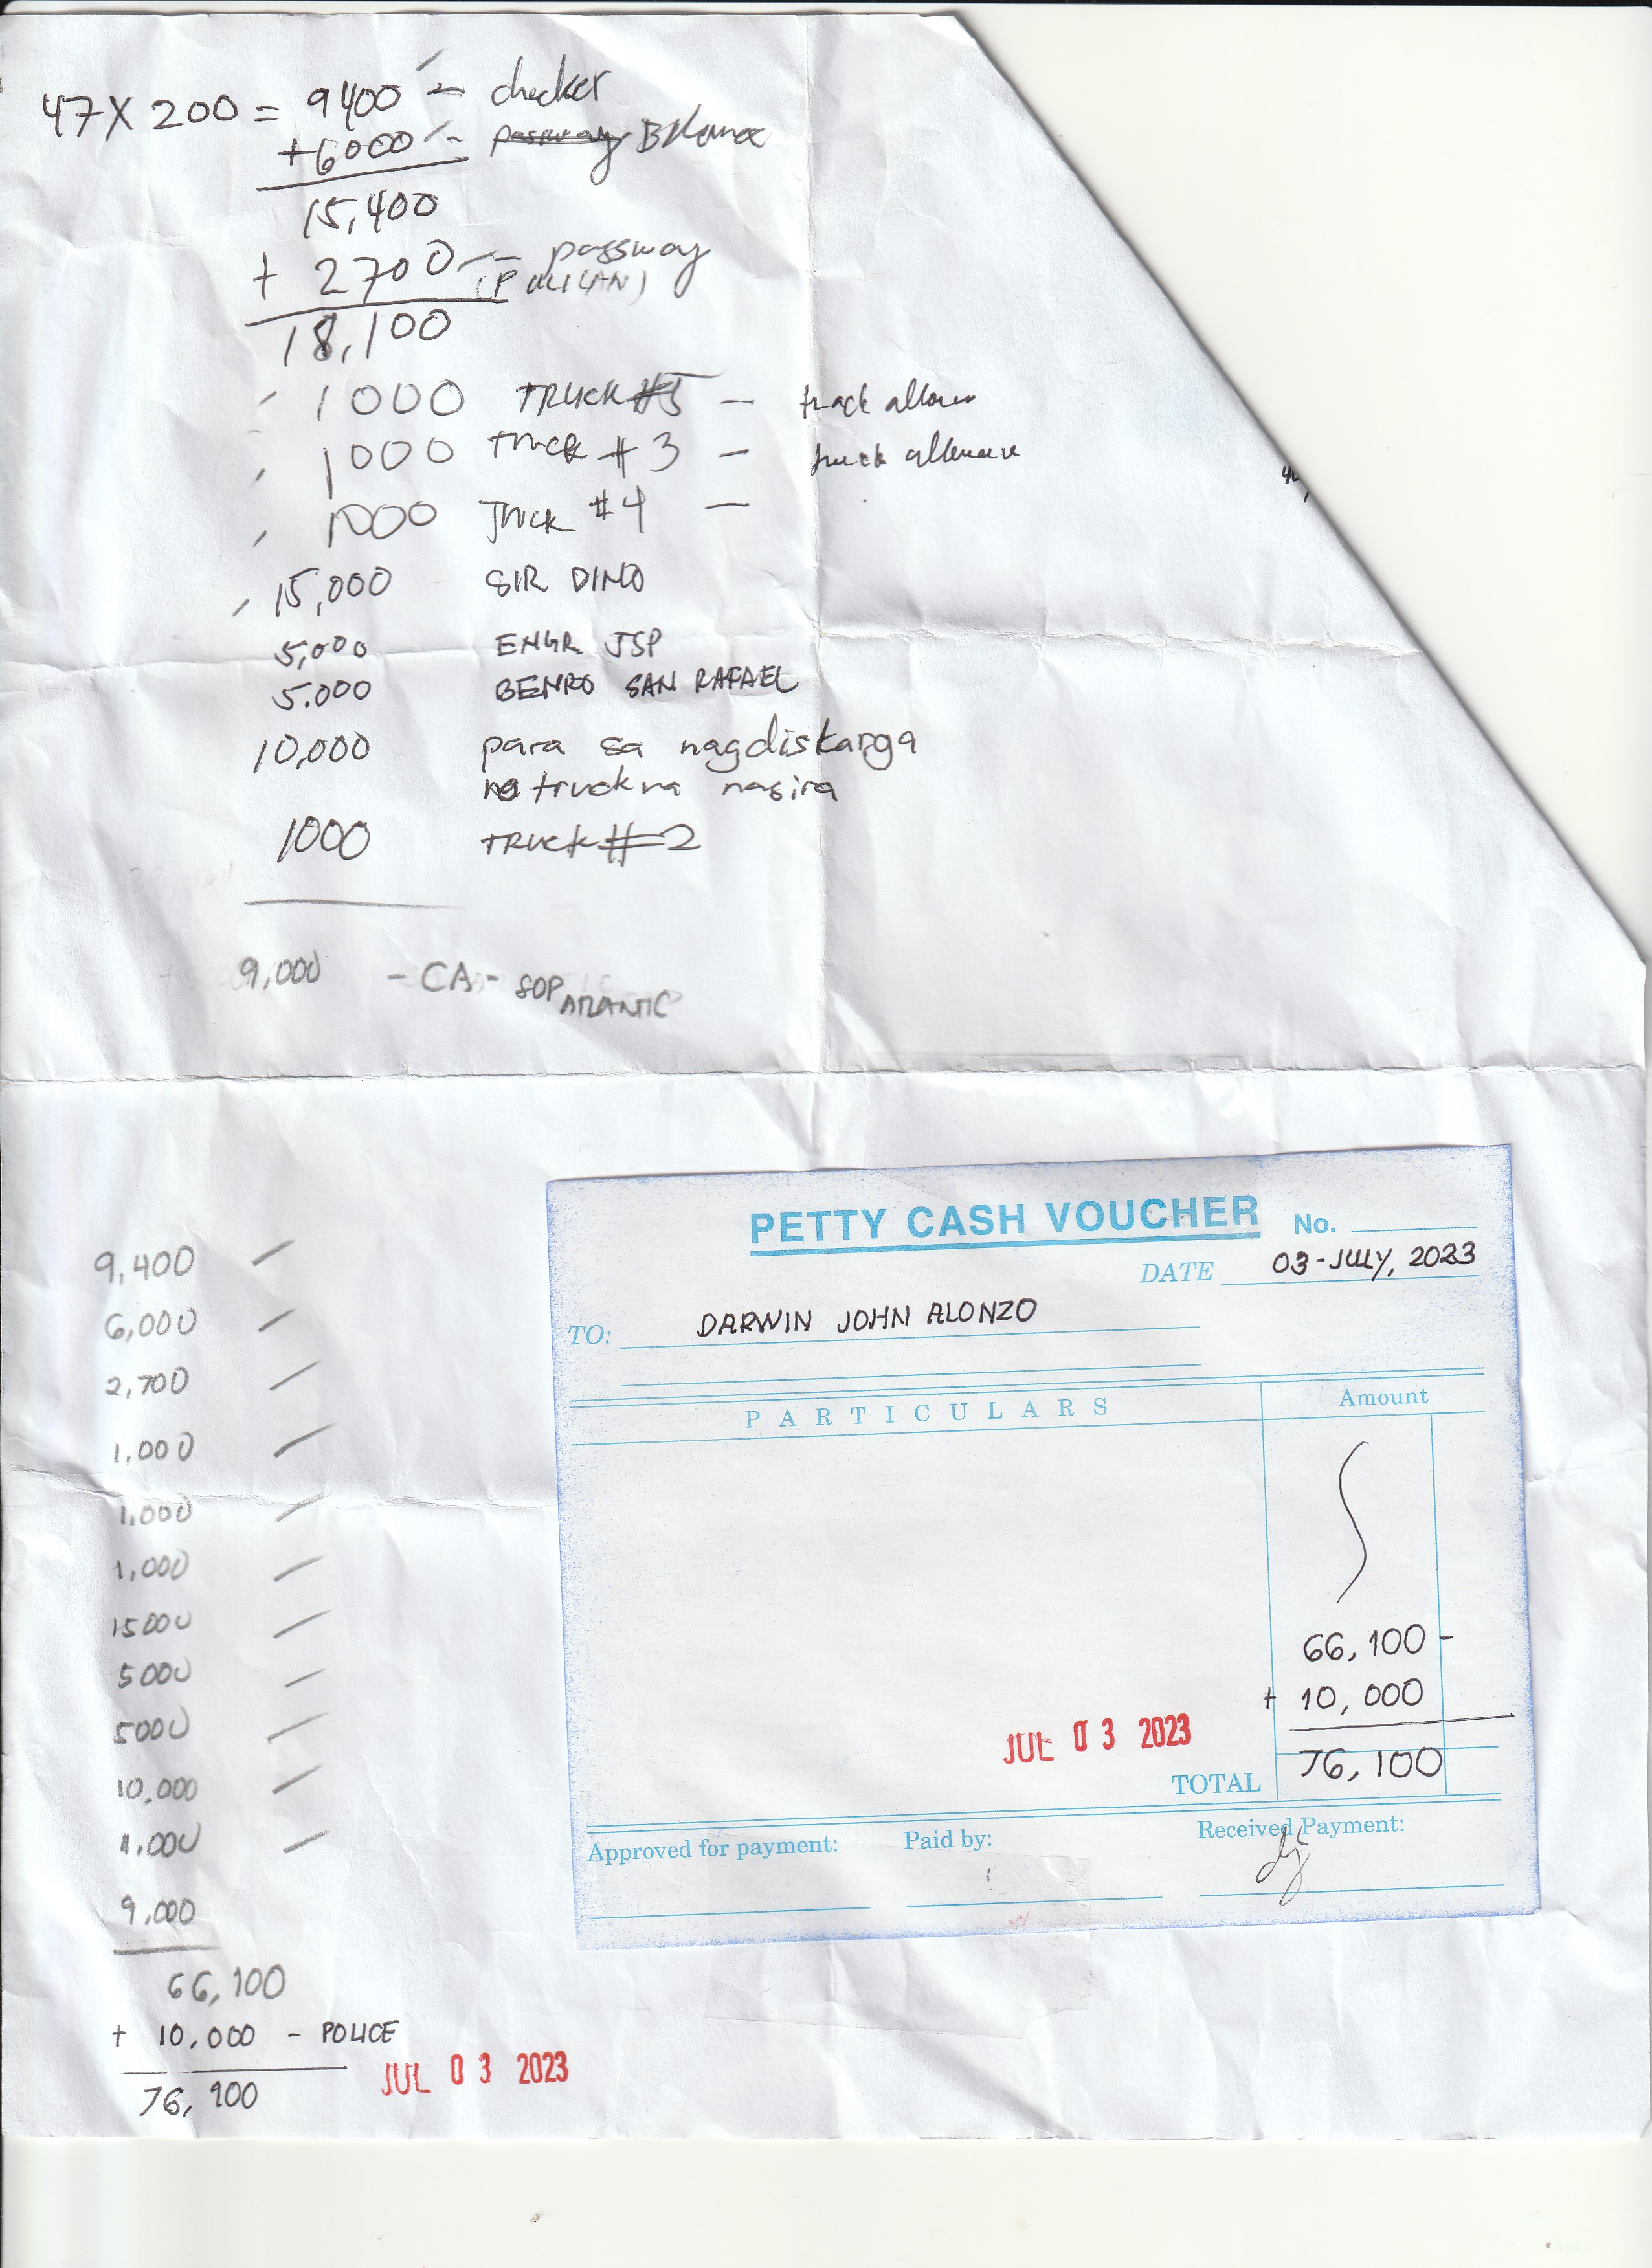 47 X 200 = 9400 - checker
+6000 - passway Balance
15,400
+ 2700 - passway
(PULILAN)
18,100
1000 TRUCK #5 - truck allowance
1000 truck # 3 - truck allowance
1000 Truck #4 -
15,000 SIR DINO
5,000 ENGR. JSP
5.000 BENRO SAN RAFAEL
10,000 para sa nagdiskarga
na truck na nasira
1000 TRUCK #2
9,000 - CA - SOP ATLANTIC
9,400
6,000
2,700
1,000
1,000
1,000
15000
5000
5000
10,000
1,000
9,000
66,100
+ 10,000 - POLICE
76,100
JUL 03 2023
PETTY CASH VOUCHER No.
DATE 03-JULY, 2023
TO: DARWIN JOHN ALONZO
PARTICULARS Amount
66,100 -
+ 10,000
JUL 03 2023
TOTAL 76,100
Approved for payment: Paid by: Received Payment: